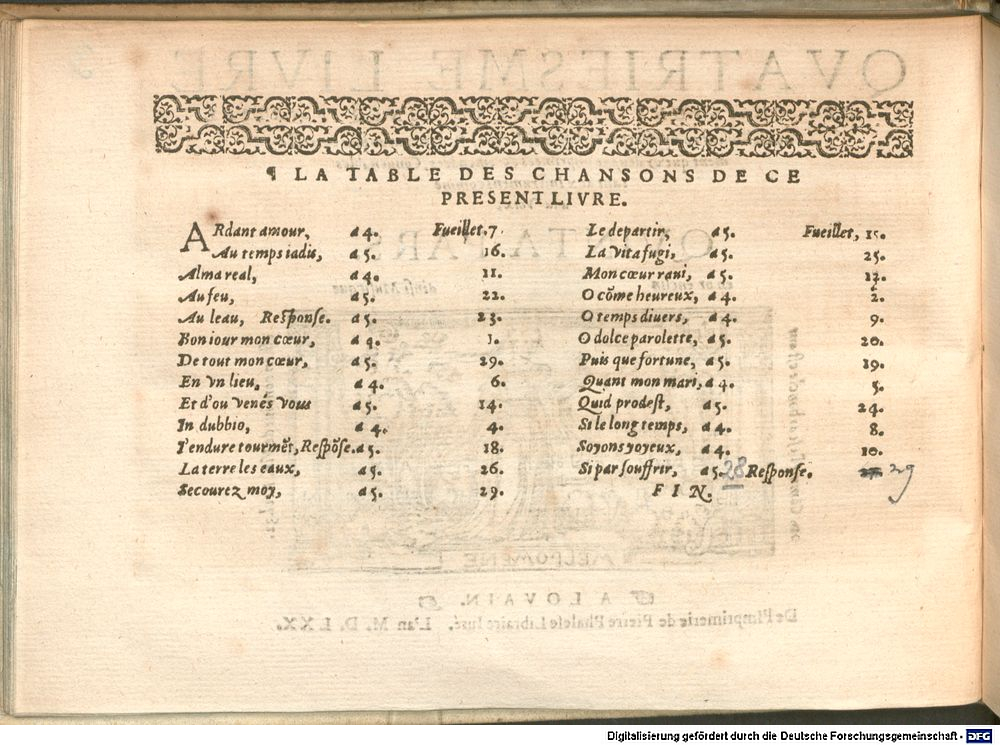 ¶ LA TABLE DES CHANSONS DE CE
PRESENT LIVRE.
ARdant amour, a 4. Fueillet. 7.
Au temps iadis, a 5. 16.
Alma real, a 4. 11.
Au feu, a 5. 22.
Au leau, Response. a 5. 23.
Bon iour mon cœur, a 4. 1.
De tout mon cœur, a 5. 29.
En vn lieu, a 4. 6.
Et d'ou venés vous a 5. 14.
In dubbio, a 4. 4.
I'endure tourmẽt, Respõse. a 5. 18.
La terre les eaux, a 5. 26.
Secourez moy, a 5. 29.
Le departir, a 5. Fueillet, 15.
La vita fugi, a 5. 25.
Mon cœur rani, a 5. 12.
O cõme heureux, a 4. 2.
O temps diuers, a 4. 9.
O dolce parolette, a 5. 20.
Puis que fortune, a 5. 19.
Quant mon mari, a 4. 5.
Quid prodest, a 5. 24.
Si le long temps, a 4. 8.
Soyons joyeux, a 4. 10.
Si par souffrir, a 5. 28 Response. 29
FIN.
QVATRIESME LIVRE
QVINTA PARS
MELPOMENE
A LOVAIN.
De l'Imprimerie de Pierre Phalese Libraire Iuré. L'an M. D. LXX.
Digitalisierung gefördert durch die Deutsche Forschungsgemeinschaft - DFG